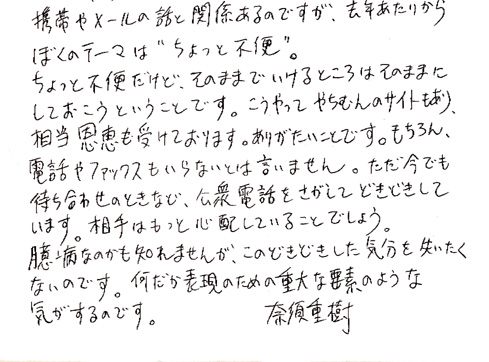 携帯やメールの話と関係あるのですが、去年あたりから
ぼくのテーマは“ちょっと不便”。
ちょっと不便だけど、そのままでいけるところはそのままに
しておこうということです。こうやってやちむんのサイトもあり、
相当恩恵も受けております。ありがたいことです。もちろん、
電話やファックスもいらないとは言いません。ただ今でも
待ち合わせのときなど、公衆電話をさがしてどきどきして
います。相手はもっと心配していることでしょう。
臆病なのかも知れませんが、このどきどきした気分を失いたく
ないのです。何だか表現のための重大な要素のような
気がするのです。 奈須重樹